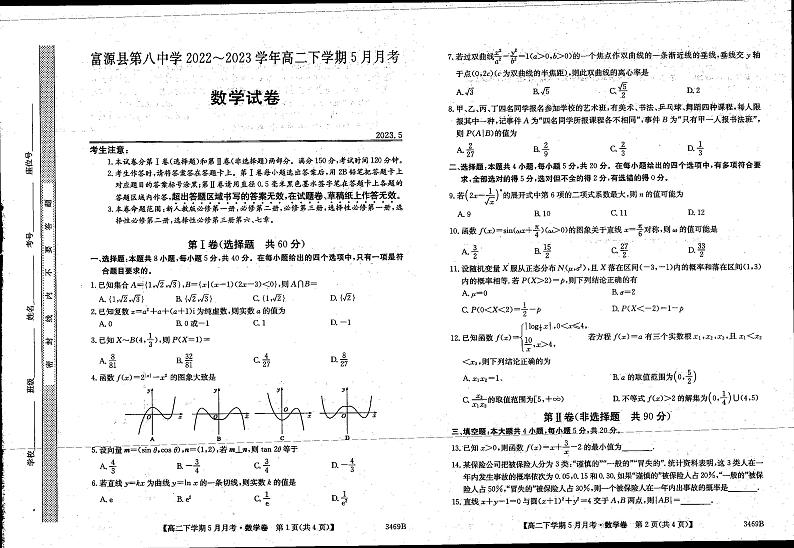 富源县第八中学2022～2023学年高二下学期5月月考
数学试卷
2023.5
考生注意:
1.本试卷分第Ⅰ卷(选择题)和第Ⅱ卷(非选择题)两部分。满分150分,考试时间120分钟。
2.考生作答时,请将答案答在答题卡上。第Ⅰ卷每小题选出答案后,用2B铅笔把答题卡上
对应题目的答案标号涂黑;第Ⅱ卷请用直径0.5毫米黑色墨水签字笔在答题卡上各题的
答题区域内作答,超出答题区域书写的答案无效,在试题卷、草稿纸上作答无效。
3.本卷命题范围:新人教版必修第一册,必修第二册,必修第三册,选择性必修第一册,选
择性必修第二册,选择性必修第三册第六、七章。
第Ⅰ卷(选择题 共60分)
一、选择题:本题共8小题,每小题5分,共40分。在每小题给出的四个选项中,只有一项是符
合题目要求的。
1.已知集合A={1,√2,√3},B={x|(x-1)(2x-3)<0},则A∩B=
A.{1,√2,√3} B.{√2,√3} C.{1,√2} D.{√2}
2.已知复数z=a²+a+(a+1)i为纯虚数,则实数a的值为
A.0 B.0或-1 C.1 D.-1
3.已知X~B(4,1/3),则P(X=1)=
A.8/81 B.32/81 C.4/27 D.8/27
4.函数f(x)=2^|x|-x²的图象大致是
A B C D
5.设向量m=(sin θ,cos θ),n=(1,2),若m⊥n,则tan 2θ等于
A.4/3 B.-3/4 C.3/4 D.-4/3
6.若直线y=kx为曲线y=ln x的一条切线,则实数k的值是
A.e B.e² C.1/e D.1/e²
【高二下学期5月月考·数学卷 第1页(共4页)】 3469B
7.若过双曲线x²/a²-y²/b²=1(a>0,b>0)的一个焦点作双曲线的一条渐近线的垂线,垂线交y轴
于点(0,2c)(c为双曲线的半焦距),则此双曲线的离心率是
A.√3 B.√5 C.√5/2 D.2
8.甲、乙、丙、丁四名同学报名参加学校的艺术班,有美术、书法、乒乓球、舞蹈四种课程,每人限
报其中一种,记事件A为“四名同学所报课程各不相同”,事件B为“只有甲一人报书法班”,
则P(A|B)的值为
A.2/27 B.2/9 C.2/3 D.1/3
二、选择题:本题共4小题,每小题5分,共20分。在每小题给出的四个选项中,有多项符合要
求,全部选对的得5分,选对但不全的得2分,有选错的得0分。
9.若(2x-1/√x)ⁿ的展开式中第6项的二项式系数最大,则n的值可能为
A.9 B.10 C.11 D.12
10.函数f(x)=sin(ωx+π/4)(ω>0)的图象关于直线x=π/6对称,则ω的值可能是
A.3/2 B.15/2 C.27/2 D.33/2
11.设随机变量X服从正态分布N(μ,σ²),且X落在区间(-3,-1)内的概率和落在区间(1,3)
内的概率相等,若P(X>2)=p,则下列结论正确的有
A.μ=0 B.σ=2
C.P(0<X<2)=1/2-p D.P(X<-2)=1-p
12.已知函数f(x)={|log₂x|,0<x≤4, 10/x,x>4, 若方程f(x)=a有三个实数根x₁,x₂,x₃,且x₁<x₂
<x₃,则下列结论正确的为
A.x₁x₂=1 B.a的取值范围为(0,5/2)
C.x₃/(x₁x₂)的取值范围为[5,+∞) D.不等式f(x)>2的解集为(0,1/4)∪(4,5)
第Ⅱ卷(非选择题 共90分)
三、填空题:本大题共4小题,每小题5分,共20分。
13.已知x>0,则函数f(x)=x+3/x-2的最小值为______.
14.某保险公司把被保险人分为3类:“谨慎的”“一般的”“冒失的”.统计资料表明,这3类人在一
年内发生事故的概率依次为0.05,0.15和0.30.如果“谨慎的”被保险人占20%,“一般的”被保
险人占50%,“冒失的”被保险人占30%,则一个被保险人在一年内出事故的概率是______.
15.直线x+y-1=0与圆(x+1)²+y²=4交于A,B两点,则|AB|=______.
【高二下学期5月月考·数学卷 第2页(共4页)】 3469B
学校
班级
姓名
考号
座位号
密封线内不要答题